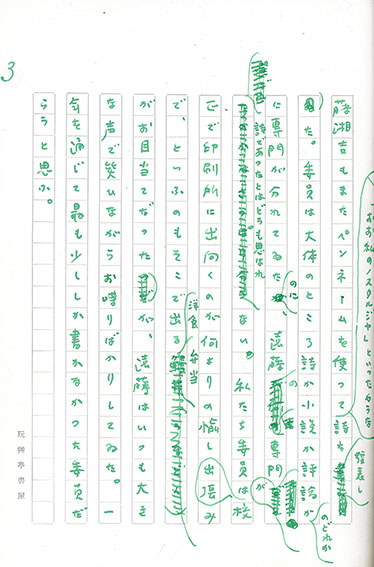 3
「おお、私のノスタルジヤ」といったやうな
藤湘吉もまたペンネームを使って詩を発表し
た。委員は大体のところ詩か小説か評論か
のどれか
に専門が分れてゐた
のに
、遠藤の専門
が
詩であつたとはどうも思はれ
ない。私たち委員は校
正で印刷所に出向くのが何よりの愉しい出張み
で、といふのもそこで出る
洋食弁当
がお目当てだった
が、遠藤はいつも大き
な声で笑ひながらお喋りばかりしてゐた。一
念を通じて最も少ししか書かなかった委員だ
らうと思ふ。
玩獅亭書屋